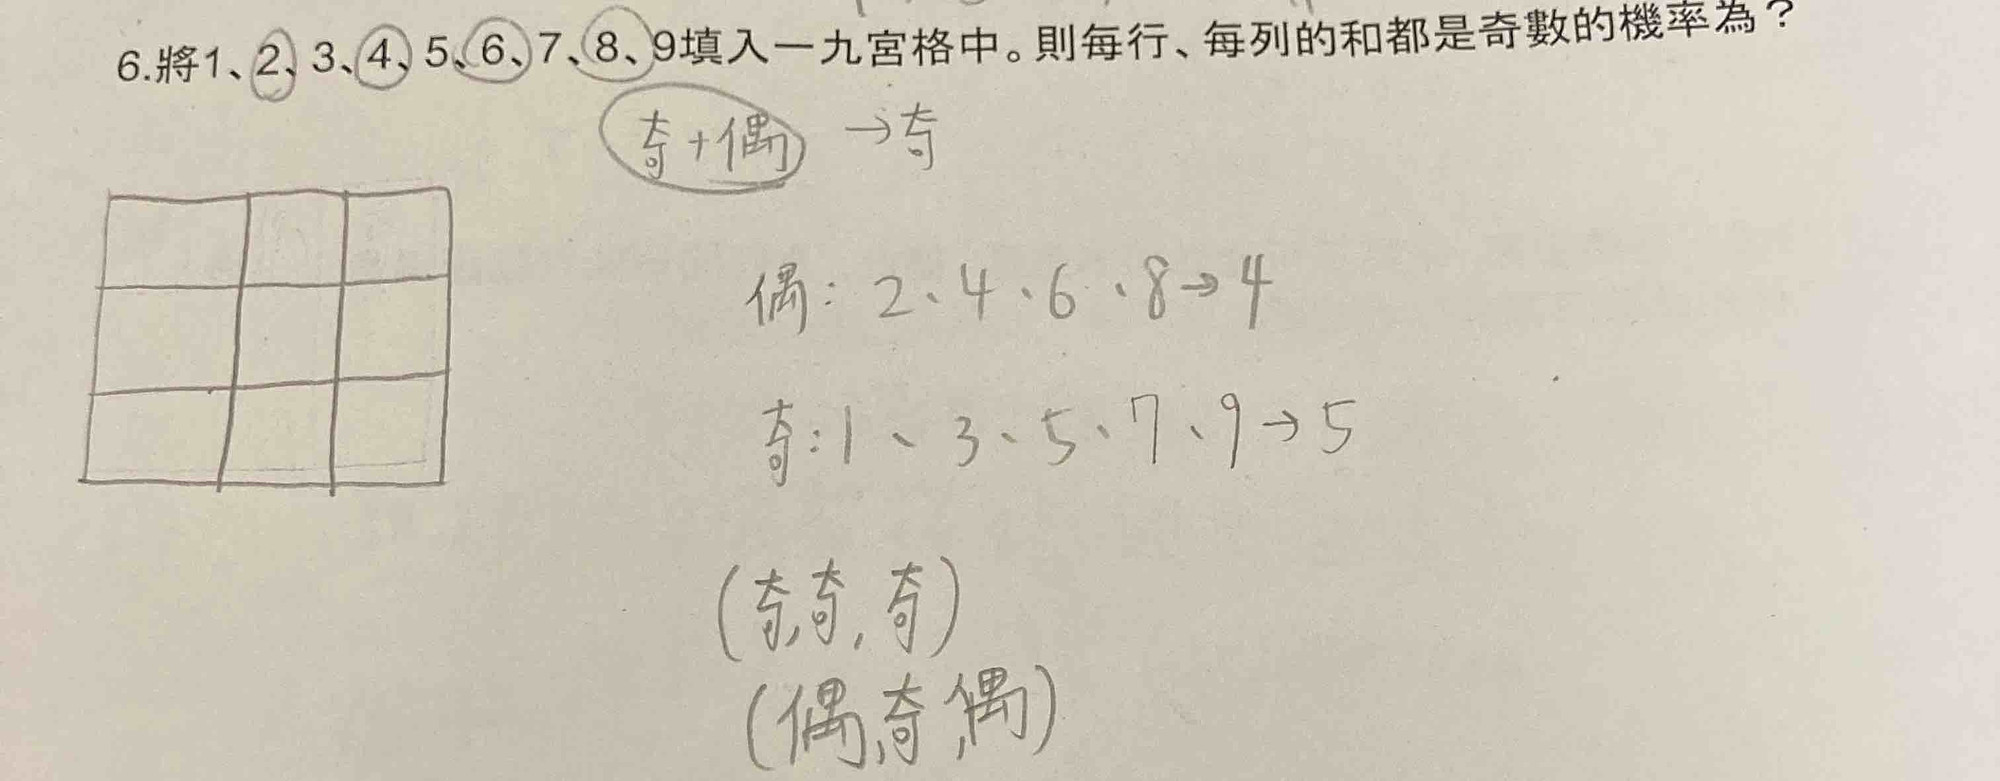 6.將1、2、3、4、5、6、7、8、9填入一九宮格中。則每行、每列的和都是奇數的機率為？
奇+偶 →奇
偶：2、4、6、8→4
奇：1、3、5、7、9→5
(奇,奇,奇)
(偶,奇,偶)